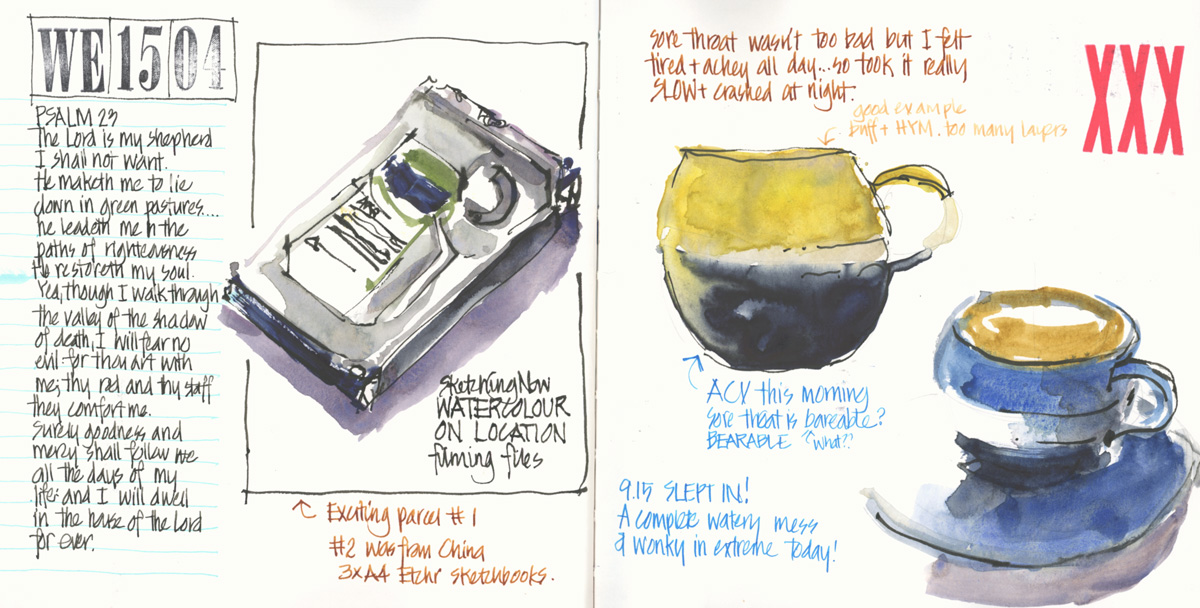 WE 15 04
PSALM 23
The Lord is my shepherd
I shall not want.
He maketh me to lie
down in green pastures....
he leadeth me in the
paths of righteousness
He restoreth my soul.
Yea, though I walk through
the valley of the shadow
of death, I will fear no
evil for thou art with
me; thy rod and thy staff
they comfort me.
Surely goodness and
mercy shall follow me
all the days of my
life: and I will dwell
in the house of the Lord
for ever.
sketchingNow
WATERCOLOUR
ON LOCATION
filming files
Exciting parcel #1
#2 was from China
3xA4 Etchr sketchbooks.
sore throat wasn't too bad but I felt
tired + achey all day...so took it really
SLOW + crashed at night.
good example
Buff + HYM. too many layers
XXX
ACK this morning
sore throat is bareable?
BEARABLE what??
9.15 SLEPT IN!
A complete watery mess
& wonky in extreme today!